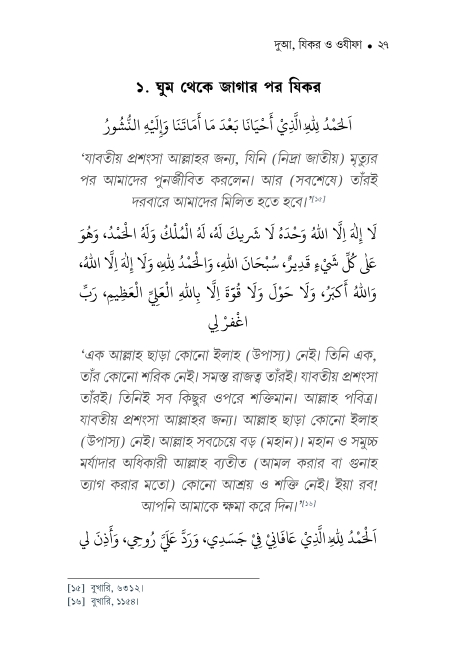 দুআ, যিকর ও ওযীফা ● ২৭
১. ঘুম থেকে জাগার পর যিকর
اَلْحَمْدُ لِلّٰهِ الَّذِيْ أَحْيَانَا بَعْدَ مَا أَمَاتَنَا وَإِلَيْهِ النُّشُورُ
‘যাবতীয় প্রশংসা আল্লাহর জন্য, যিনি (নিদ্রা জাতীয়) মৃত্যুর
পর আমাদের পুনর্জীবিত করলেন। আর (সবশেষে) তাঁরই
দরবারে আমাদের মিলিত হতে হবে।’[১৫]
لَا إِلٰهَ اِلَّا اللهُ وَحْدَهُ لَا شَرِيكَ لَهُ، لَهُ الْمُلْكُ وَلَهُ الْحَمْدُ، وَهُوَ
عَلٰى كُلِّ شَيْءٍ قَدِيرٌ، سُبْحَانَ اللهِ، وَالْحَمْدُ لِلّٰهِ، وَلَا إِلٰهَ اِلَّا اللهُ،
وَاللهُ أَكْبَرُ، وَلَا حَوْلَ وَلَا قُوَّةَ اِلَّا بِاللهِ الْعَلِيِّ الْعَظِيمِ، رَبِّ
اغْفِرْ لِي
‘এক আল্লাহ ছাড়া কোনো ইলাহ (উপাস্য) নেই। তিনি এক,
তাঁর কোনো শরিক নেই। সমস্ত রাজত্ব তাঁরই। যাবতীয় প্রশংসা
তাঁরই। তিনিই সব কিছুর ওপরে শক্তিমান। আল্লাহ পবিত্র।
যাবতীয় প্রশংসা আল্লাহর জন্য। আল্লাহ ছাড়া কোনো ইলাহ
(উপাস্য) নেই। আল্লাহ সবচেয়ে বড় (মহান)। মহান ও সমুচ্চ
মর্যাদার অধিকারী আল্লাহ ব্যতীত (আমল করার বা গুনাহ
ত্যাগ করার মতো) কোনো আশ্রয় ও শক্তি নেই। ইয়া রব!
আপনি আমাকে ক্ষমা করে দিন।’[১৬]
اَلْحَمْدُ لِلّٰهِ الَّذِيْ عَافَانِيْ فِيْ جَسَدِي، وَرَدَّ عَلَيَّ رُوحِي، وَأَذِنَ لي
[১৫] বুখারি, ৬৩১২।
[১৬] বুখারি, ১১৫৪।